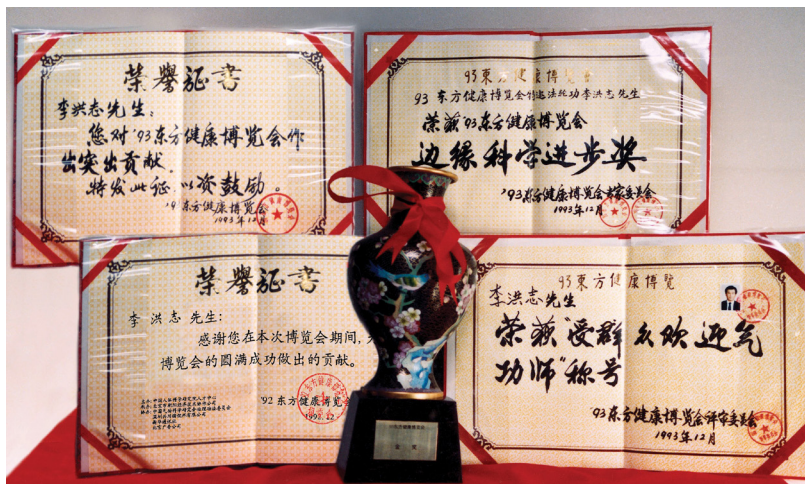 荣誉证书
李洪志先生：
您对'93东方健康博览会作
出突出贡献.
特发此证.以资鼓励。
东方健康博览会
1993年12月
93東方健康博览會
93 东方健康博览会特邀法轮功李洪志先生
荣获'93东方健康博览会
边缘科学进步奖
'93东方健康博览会专家委员会
1993年12月
荣誉证书
李 洪 志 先生：
感谢您在本次博览会期间，
博览会的圆满成功做出的贡献。
'92 东方健康博览会
93東方健康博覽
李洪志先生
荣获"受群众欢迎气
功师"称号
'93东方健康博览会评审委员会
1993年12月